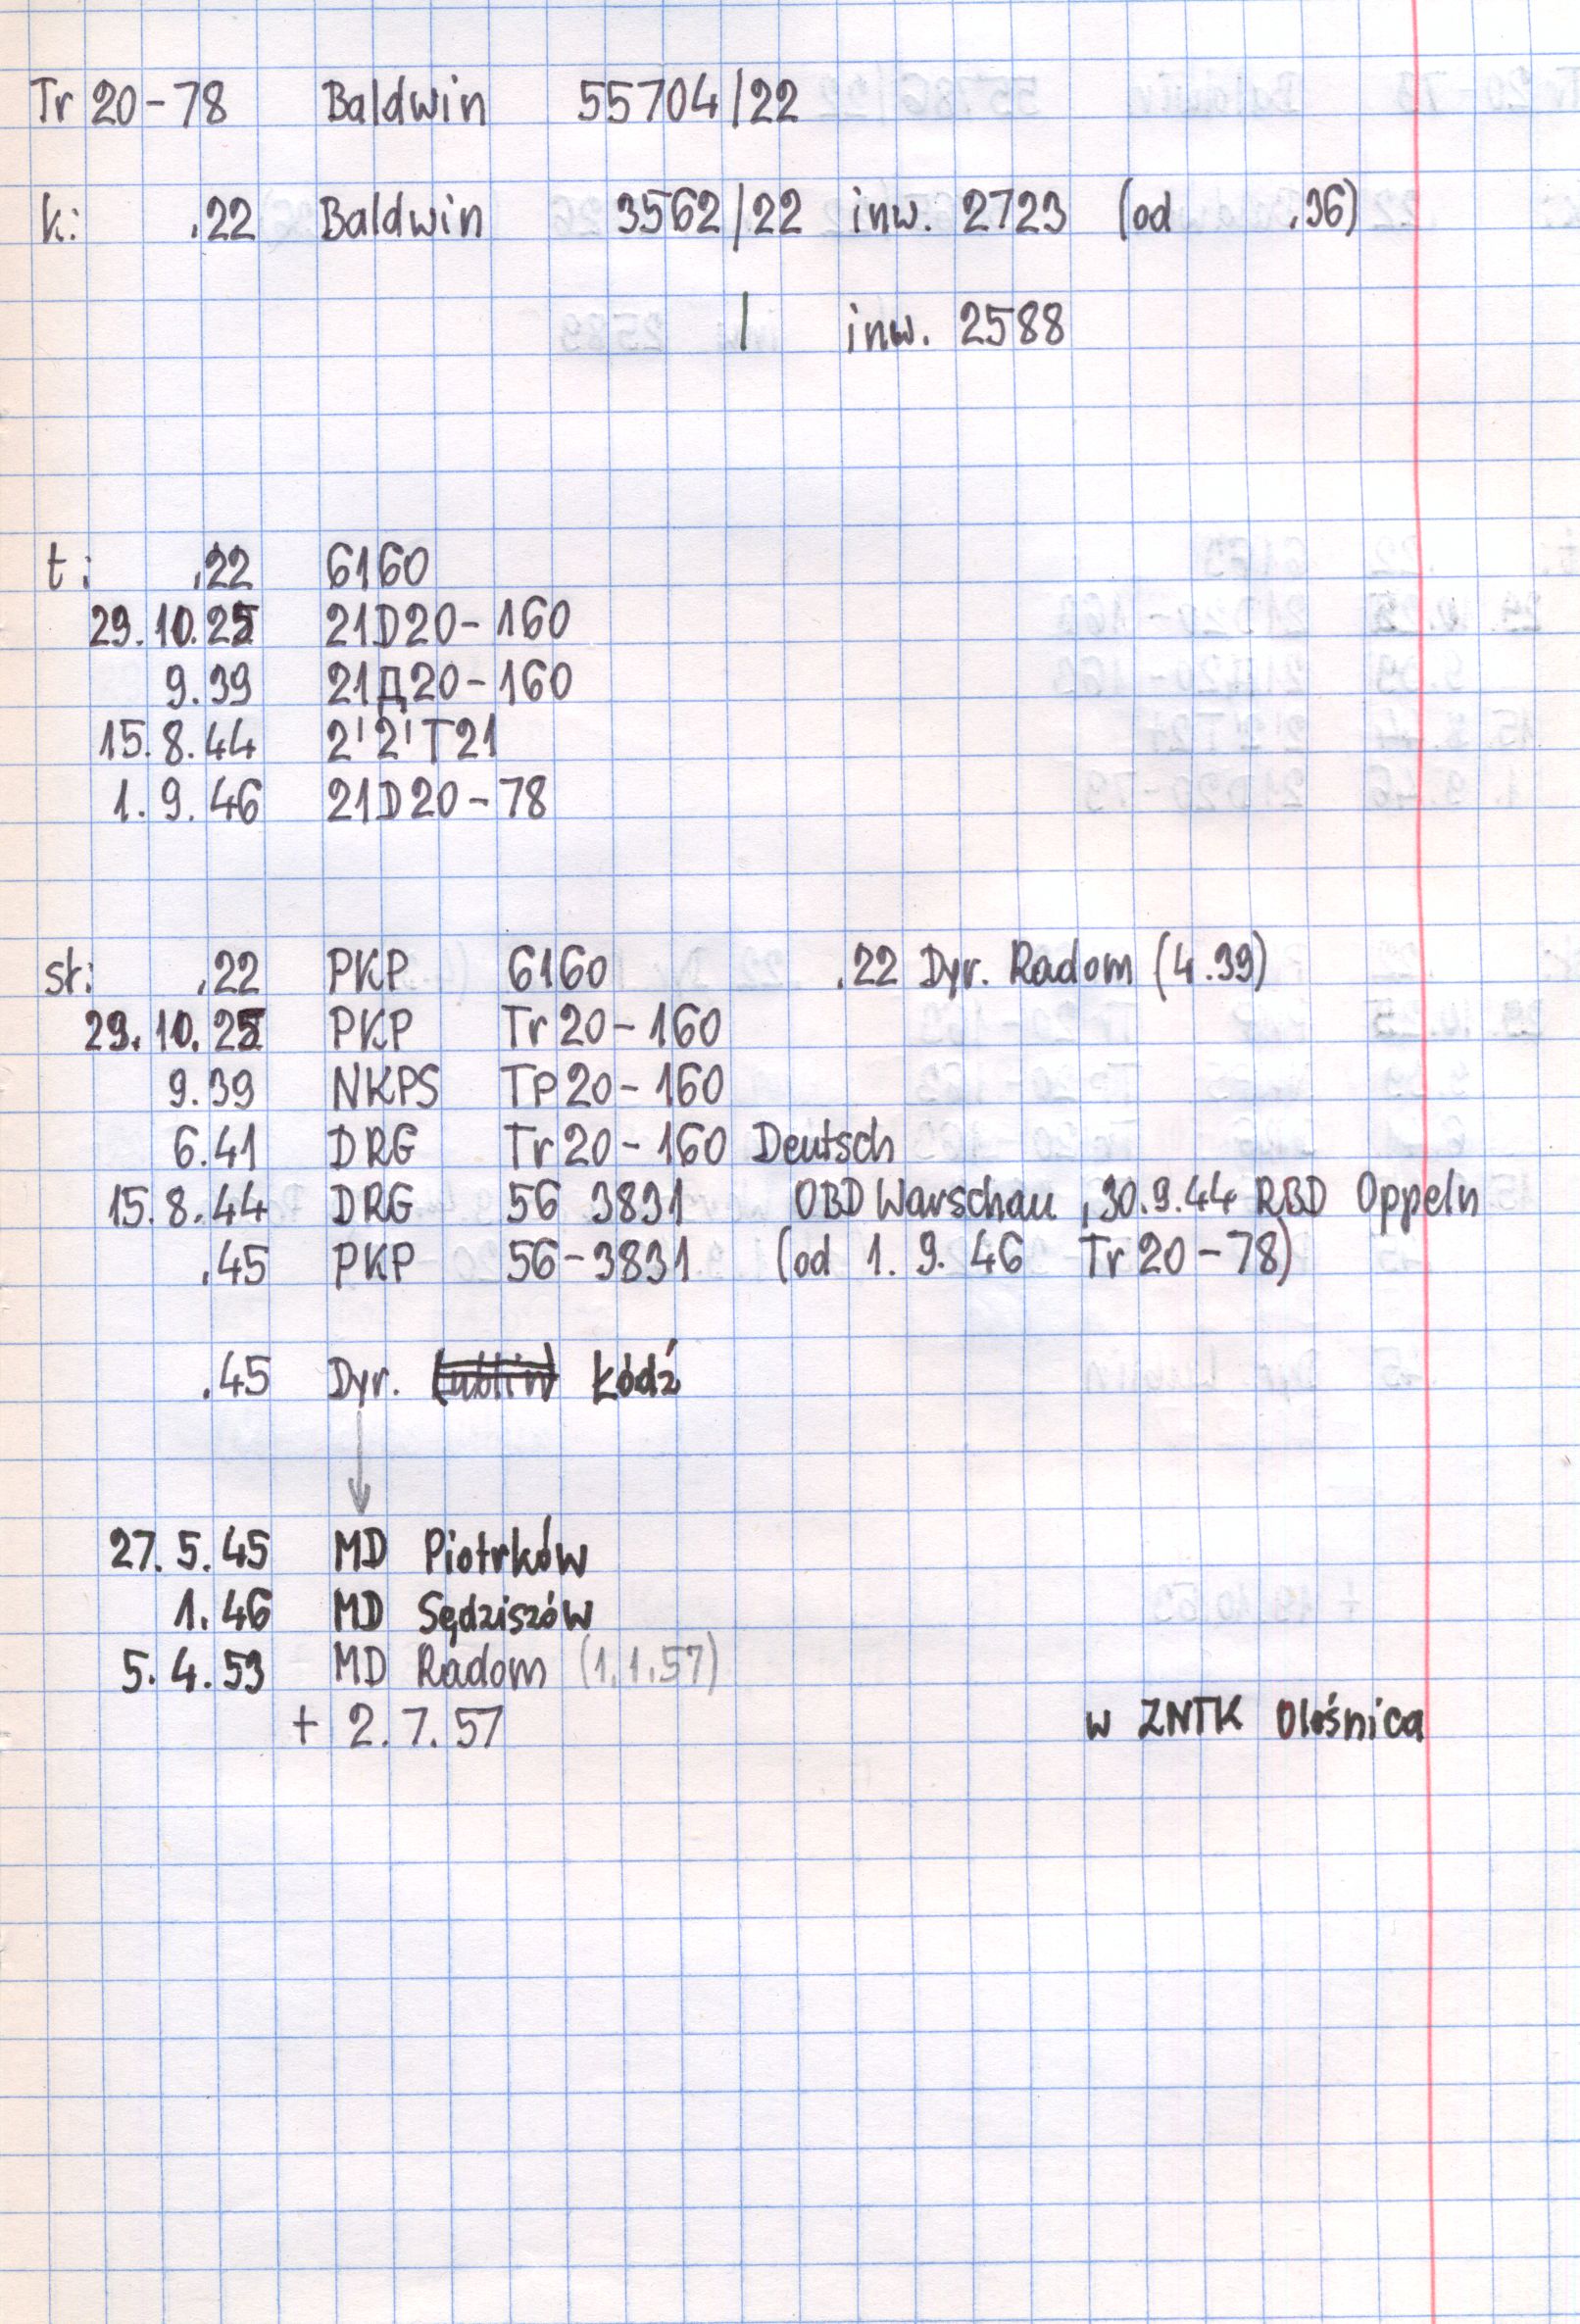 Tr 20-78 Baldwin 55704/22
k: .22 Baldwin 3562/22 inw. 2723 (od .36)
/ inw. 2588
t: .22 6160
29.10.25 21D20-160
9.39 21Д20-160
15.8.44 2'2'T21
1.9.46 21D20-78
st: .22 PKP 6160 .22 Dyr. Radom (4.39)
29.10.25 PKP Tr 20-160
9.39 NKPS Тр 20-160
6.41 DRG Tr 20-160 Deutsch
15.8.44 DRG 56 3831 OBD Warschau, 30.9.44 RBD Oppeln
.45 PKP 56-3831 (od 1.9.46 Tr 20-78)
.45 Dyr. Łódź
27.5.45 MD Piotrków
1.46 MD Sędziszów
5.4.53 MD Radom (1.1.57)
+ 2.7.57 w ZNTK Oleśnica